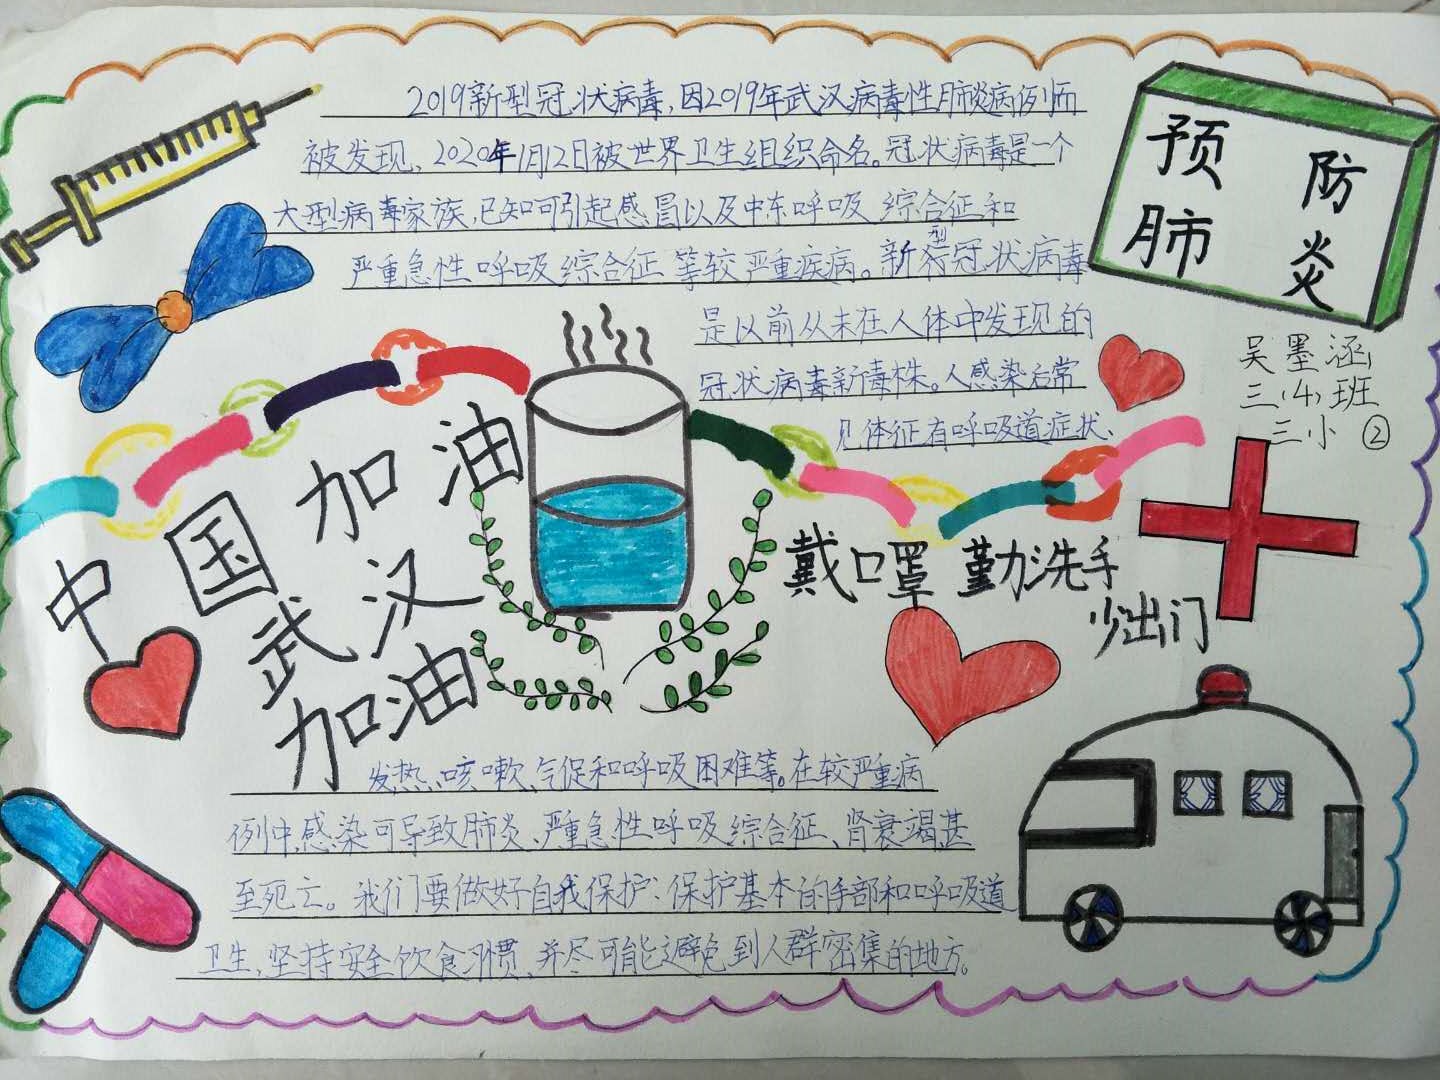 2019新型冠状病毒,因2019年武汉病毒性肺炎病例而
被发现、2020年1月12日被世界卫生组织命名。冠状病毒是一个
大型病毒家族,已知可引起感冒以及中东呼吸综合征和
严重急性呼吸综合征等较严重疾病。新型冠状病毒
是以前从未在人体中发现的
冠状病毒新毒株。人感染后常
见体征有呼吸道症状、
预防
肺炎
吴墨涵
三(4)班
三小 ②
中国加油
武汉
加油
戴口罩 勤洗手
少出门
发热、咳嗽、气促和呼吸困难等。在较严重病
例中,感染可导致肺炎、严重急性呼吸综合征、肾衰竭,甚
至死亡。我们要做好自我保护:保护基本的手部和呼吸道
卫生,坚持安全饮食习惯、并尽可能避免到人群密集的地方。